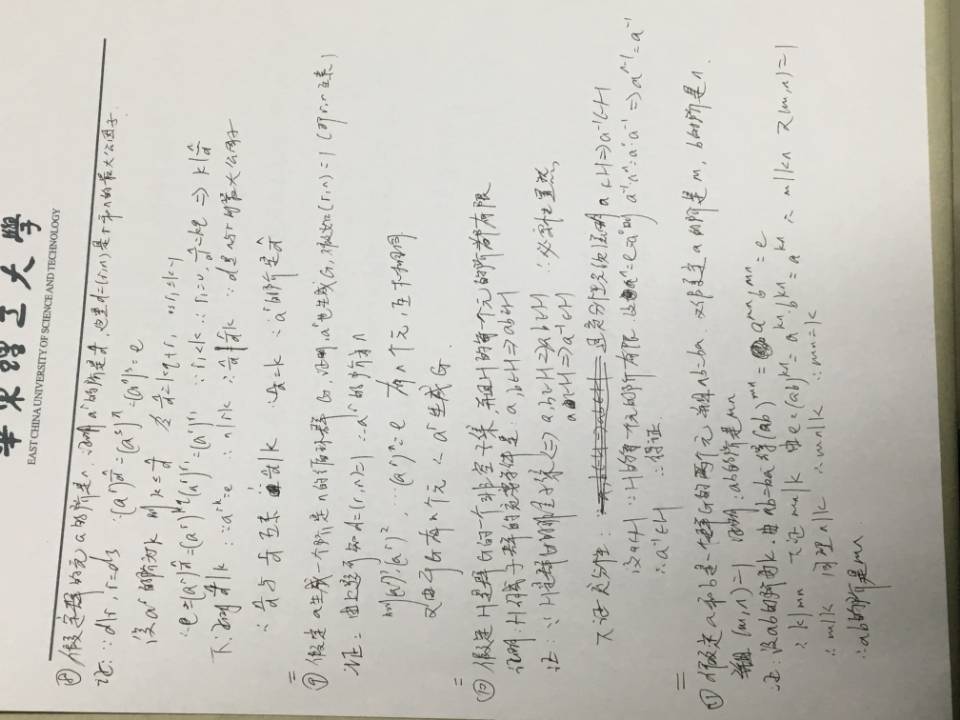 華東理工大學
EAST CHINA UNIVERSITY OF SCIENCE AND TECHNOLOGY
⑧ 假定群的元a的阶是n.证明a^r的阶是n/d,这里d=(r,n)是r和n的最大公因子.
证:∵d|r, r=ds ∴(a^r)^{n/d}=(a^s)^n=(a^n)^s=e
设a^r的阶为k 则k≤n/d 令n/d=kq+r₁ 0≤r₁≤k-1
∴e=(a^r)^{n/d}=(a^r)^{kq}(a^r)^{r₁}=(a^r)^{r₁} ∵r₁<k ∴r₁=0, n/d=kq ⇒ k|n/d
下证n/d|k ∵a^{rk}=e ∴n|rk ∴n/d|r/d k ∵d是n与r的最大公因子
∴n/d与r/d互素 ∴n/d|k ∴n/d=k ∴a^r的阶是n/d
=
⑨ 假定a生成一个阶是n的循环群G,证明,a^r也生成G,假如(r,n)=1(即r,n互素)
证:由上题可知d=(r,n)=1 ∴a^r的阶为n
则(a^r)^1,(a^r)^2,…(a^r)^n=e 有n个元,互不相同
又由于G有n个元 ∴a^r生成G.
=
⑩ 假定H是群G的一个非空子集,并且H的每一个元的阶都有限
证明:H作成子群的充要条件是:a,b∈H⇒ab∈H
证:∵H是群G的非空子集⇔a,b∈H⇒ab∈H ∴必要性显然
a∈H⇒a^{-1}∈H
下证充分性: 只须证明a∈H⇒a^{-1}∈H
设a∈H ∵H的每一个元的阶有限,设a^n=e=a^0则a^{-1}a^n=a^0·a^{-1}⇒a^{n-1}=a^{-1}
∴a^{-1}∈H ∴得证.
=
⑪ 假定a和b是一个群G的两个元 并且ab=ba.又假定a的阶是m,b的阶是n.
并且(m,n)=1 证明:ab的阶是mn
证:设ab的阶为k.由ab=ba得(ab)^{mn}=a^{mn}b^{mn}=e
∴k|mn 下证mn|k 由e=(ab)^{kn}=a^{kn}·b^{kn}=a^{kn} ∴m|kn 又(m,n)=1
∴m|k 同理n|k ∴mn|k ∴mn=k
∴ab的阶是mn.